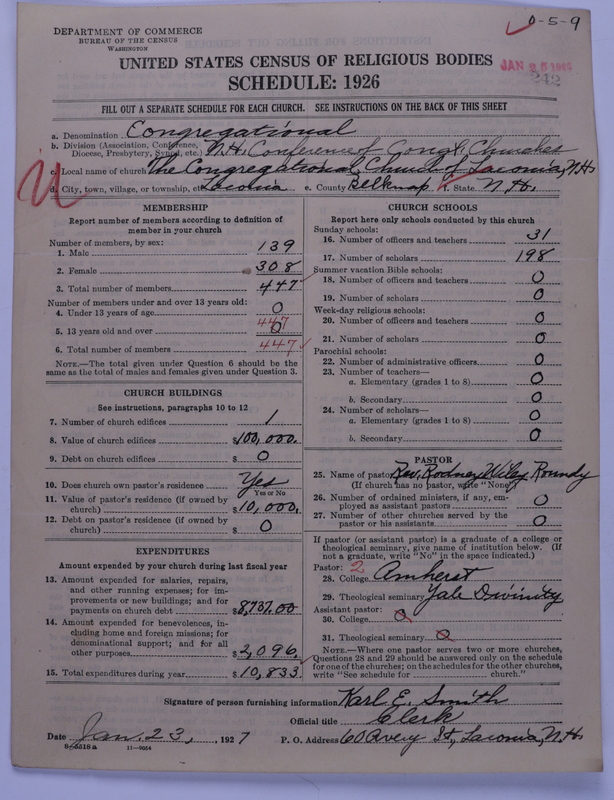 DEPARTMENT OF COMMERCE
BUREAU OF THE CENSUS
WASHINGTON
0-5-9
UNITED STATES CENSUS OF RELIGIOUS BODIES
JAN 25
242
SCHEDULE: 1926
FILL OUT A SEPARATE SCHEDULE FOR EACH CHURCH. SEE INSTRUCTIONS ON THE BACK OF THIS SHEET
a. Denomination Congregational
b. Division (Association, Conference, Diocese, Presbytery, Synod, etc.) N.H. Conference of Cong'l. Churches
c. Local name of church The Congregational Church of Laconia, N.H.
d. City, town, village, or township, etc. Laconia e. County Belknap f. State N.H.
MEMBERSHIP
Report number of members according to definition of member in your church
Number of members, by sex:
1. Male 139
2. Female 308
3. Total number of members 447
Number of members under and over 13 years old:
4. Under 13 years of age 0
5. 13 years old and over 0 447
6. Total number of members 447
NOTE.—The total given under Question 6 should be the same as the total of males and females given under Question 3.
CHURCH BUILDINGS
See instructions, paragraphs 10 to 12
7. Number of church edifices 1
8. Value of church edifices $100,000.
9. Debt on church edifices $ 0
10. Does church own pastor's residence Yes
Yes or No
11. Value of pastor's residence (if owned by church) $10,000.
12. Debt on pastor's residence (if owned by church) $ 0
EXPENDITURES
Amount expended by your church during last fiscal year
13. Amount expended for salaries, repairs, and other running expenses; for improvements or new buildings; and for payments on church debt $8,737.00
14. Amount expended for benevolences, including home and foreign missions; for denominational support; and for all other purposes $2,096.
15. Total expenditures during year $10,833.
CHURCH SCHOOLS
Report here only schools conducted by this church
Sunday schools:
16. Number of officers and teachers 31
17. Number of scholars 198
Summer vacation Bible schools:
18. Number of officers and teachers 0
19. Number of scholars 0
Week-day religious schools:
20. Number of officers and teachers 0
21. Number of scholars 0
Parochial schools:
22. Number of administrative officers 0
23. Number of teachers—
a. Elementary (grades 1 to 8) 0
b. Secondary 0
24. Number of scholars—
a. Elementary (grades 1 to 8) 0
b. Secondary 0
PASTOR
25. Name of pastor Rev. Rodney Wiley Roundy
(If church has no pastor, write "None")
26. Number of ordained ministers, if any, employed as assistant pastors 0
27. Number of other churches served by the pastor or his assistants 0
If pastor (or assistant pastor) is a graduate of a college or theological seminary, give name of institution below. (If not a graduate, write "No" in the space indicated.)
Pastor: 2
28. College Amherst
29. Theological seminary Yale Divinity
Assistant pastor:
30. College 0
31. Theological seminary 0
NOTE.—Where one pastor serves two or more churches, Questions 28 and 29 should be answered only on the schedule for one of the churches; on the schedules for the other churches, write "See schedule for ________ church."
Signature of person furnishing information Karl E. Smith
Official title Clerk
Date Jan. 23, 1927 P. O. Address 60 Avery St., Laconia, N.H.
8-5518a 11-9054